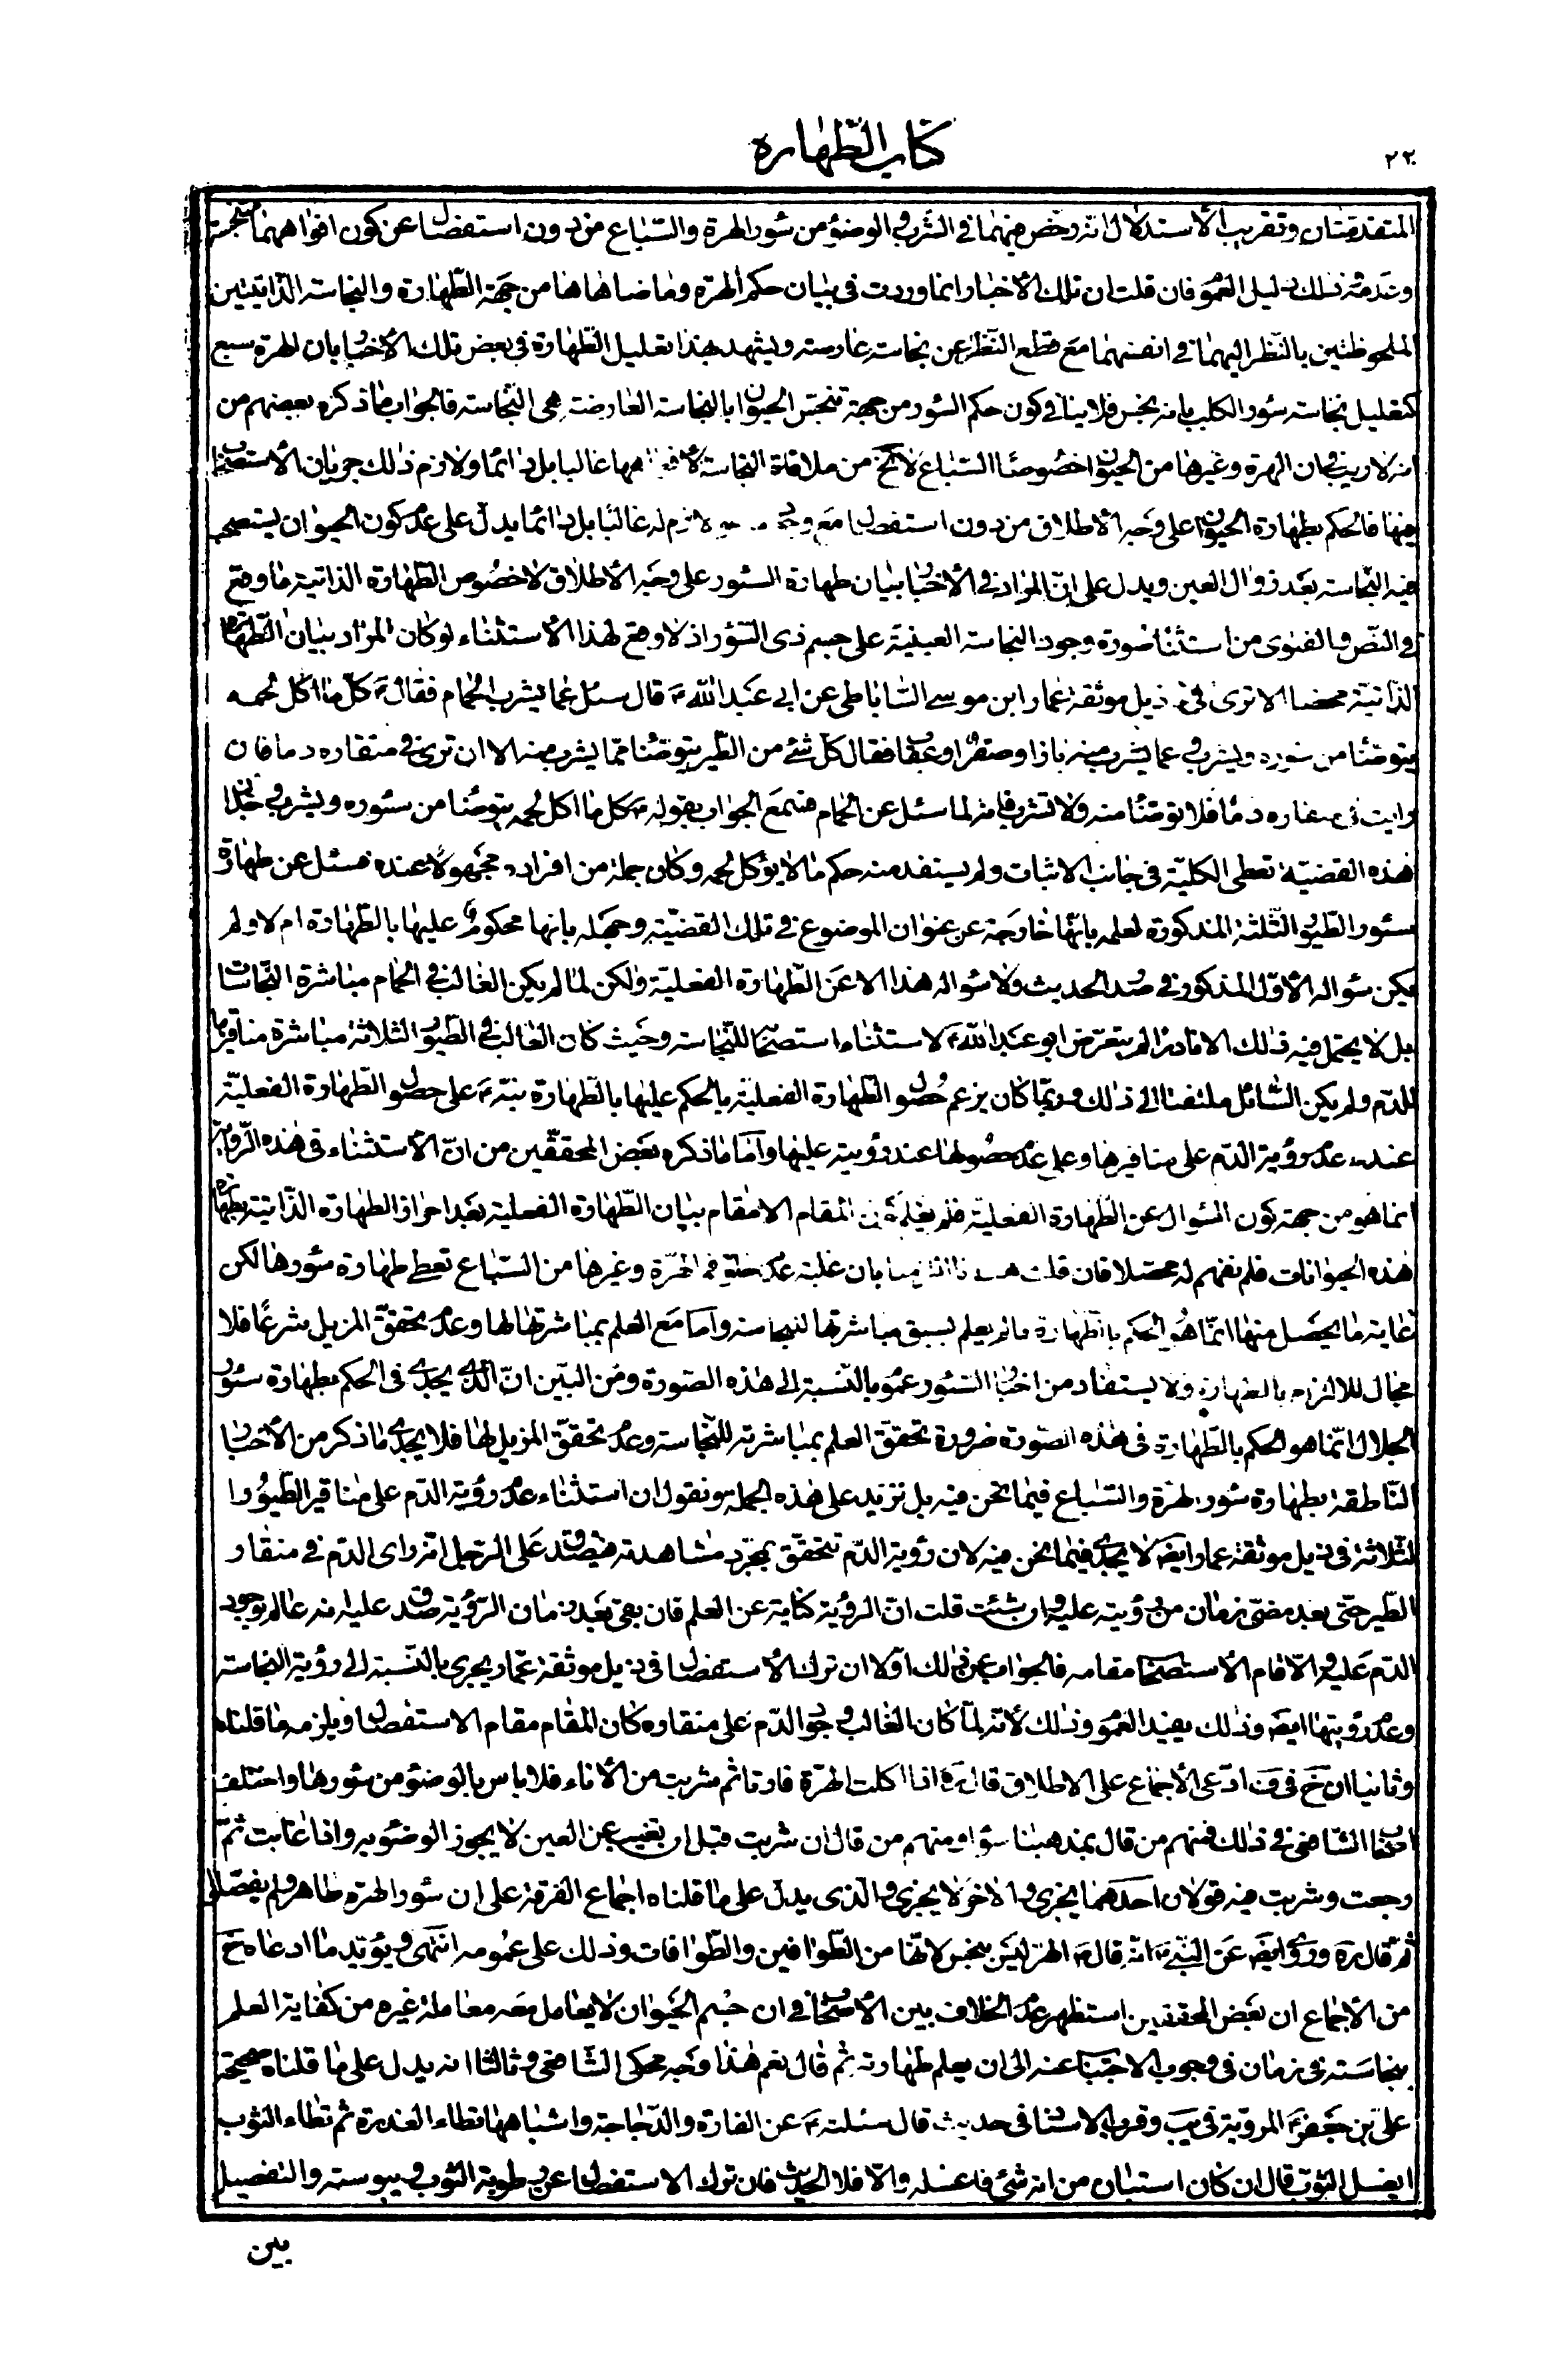 ٢٢٠
كتاب الطّهارة
المتقدمتان وتقريب الأستدلال انّه رخّص فيهما في الشّرب والوضوء من سؤر الهرة والسّباع من دون استفصال عن كون افواههما متنجسة
وعدمه وذلك دليل العموم فان قلت ان تلك الأخبار انما وردت في بيان حكم الهرة وما ضاهاها من جهة الطّهارة والنجاسة الذّاتيتين
الملحوظتين بالنّظر اليهما في انفسهما مع قطع النّظر عن نجاسة عارضة ويشهد بهذا تعليل الطّهارة في بعض تلك الأخبار بان الهرة سبع
كتعليل نجاسة سؤر الكلب بانه نجس فلا ينافي كون حكم السّؤر من جهة تنجس الحيوان بالنجاسة العارضة هي النّجاسة فالجواب ما ذكره بعضهم من
انه لا ريب في ان الهرة وغيرها من الحيوان خصوصًا السّباع لا تخ من ملاقاة النجاسة لأفواهها غالبا بل دائما ولازم ذلك جريان الأستصحاب
فيها فالحكم بطهارة الحيوان على وجه الأطلاق من دون استفصال مع لازم له غالبا بل دائما يدل على عدم كون الحيوان يستصحب
فيه النّجاسة بعد زوال العين ويدل على انّ المراد في الأخبار بيان طهارة السّؤر على وجه الأطلاق لا خصوص الطّهارة الذاتية ما وقع
في النّص والفتوى من استثناء صورة وجود النجاسة العينية على جسم ذى السّؤر اذ لا وقع لهذا الأستثناء لو كان المراد بيان الطّهارة
الذّاتيّة محضا الا ترى في ذيل موثقة عمار ابن موسى السّاباطى عن ابي عبد الله ع قال سئل عما يشرب الحمام فقال ع كلّ ما اكل لحمه
يتوضّأ من سؤره ويشرب وعما يشرب منه باز او صقر او عقاب فقال كلّ شئ من الطّير يتوضّأ ممّا يشرب منه الا ان ترى في منقاره دما فان
رايت في منقاره دمًا فلا توضّأ منه ولا تشرب فانه لما سئل عن الحمام فسمع الجواب بقوله ع كل ما اكل لحمه يتوضّأ من سؤره ويشرب
هذه القضيّة تعطى الكليّة في جانب الاثبات ولم يستفد منه حكم ما لا يؤكل لحمه وكان جملة من افراده مجهولًا عنده فسئل عن طهارة
سؤر الطّيور الثّلثة المذكورة لعلمه بانّها خارجة عن عنوان الموضوع في تلك القضيّة وجهله بانها محكوم عليها بالطّهارة ام لا ولم
يكن سؤاله الأوّل المذكور في صدر الحديث ولا سؤاله هذا الا عن الطّهارة الفعليّة ولكن لما لم يكن الغالب في الحمام مباشرة النّجاسات
بل لا يحتمل فيه ذلك الا نادرا لم يتعرّض ابو عبد الله ع لاستثناء استصحاب النّجاسة وحيث كان الغالب في الطّيور الثلاثة مباشرة مناقيرها
للدّم ولم يكن السّائل ملتفتا الى ذلك وربّما كان يزعم حصول الطّهارة الفعليّة بالحكم عليها بالطّهارة نبّه ع على حصول الطّهارة الفعليّة
عند عدم رؤية الدّم على مناقيرها وعلى عدم حصولها عند رؤيته عليها وامّا ما ذكره بعض المحقّقين من انّ الأستثناء في هذه الرّواية
انما هو من جهة كون السّؤال عن الطّهارة الفعليّة فلم يعلم في المقام الا مقام بيان الطّهارة الفعلية بعد احراز الطهارة الذّاتية بطهارة
هذه الحيوانات فلم نفهم له محصّلا فان قلت بان غلبة عدم خلوّ فم الهرّة وغيرها من السّباع تعطى طهارة سؤرها لكن
غاية ما يحصل منها انّما هو الحكم بالطّهارة ما لم يعلم بسبق مباشرتها لنجاسة وامّا مع العلم بمباشرتها لها وعدم تحقّق المزيل شرعًا فلا
مجال للالتزام بالطهارة ولا يستفاد من اخبار السّؤر عموم بالنّسبة الى هذه الصّورة ومن البيّن انّ الّذى يجدى في الحكم بطهارة سؤر
الجلال انّما هو الحكم بالطّهارة في هذه الصّورة ضرورة تحقّق العلم بمباشرته للنّجاسة وعدم تحقّق المزيل لها فلا يجدى ما ذكر من الأخبار
النّاطقة بطهارة سؤر الهرّة والسّباع فيما نحن فيه بل نزيد على هذه الجملة ونقول ان استثناء عدم رؤية الدّم على مناقير الطّيور ا
لثّلاثة في ذيل موثقة عمار ايضا لا يجدى فيما نحن فيه لان رؤية الدّم تتحقّق بمجرّد مشاهدته فيصدق على الرّجل انّه راى الدّم في منقار
الطّير حتّى بعد مضىّ زمان من رؤيته عليه وان شئت قلت انّ الرؤية كناية عن العلم فان بقى بعد زمان الرّؤية صدق عليه انه عالم بوجود
الدّم عليه والّا قام الأستصحاب مقامه فالجواب عن ذلك اوّلا ان ترك الأستفصال في ذيل موثقة عمّار يجرى بالنّسبة الى رؤية النجاسة
وعدم رؤيتها ايضا وذلك يفيد العموم وذلك لأنّه لمّا كان الغالب وجود الدّم على منقاره كان المقام مقام الاستفصال فيلزمه ما قلناه
وثانيا ان خ في ف ادّعى الأجماع على الاطلاق قال ره اذا اكلت الهرّة فارة ثم شربت من الأناء فلا باس بالوضوء من سؤرها واختلف
اصحاب الشّافعى في ذلك فمنهم من قال بمذهبنا سواء ومنهم من قال ان شربت قبل ان تغيب عن العين لا يجوز الوضوء به واذا غابت ثمّ
رجعت وشربت فيه قولان احدهما يجزى والاخر لا يجزى والّذى يدلّ على ما قلناه اجماع الفرقة على ان سؤر الهرّة طاهر ولم يفصّلوا
ثم قال ره وروى ايضا عن النّبى ص انّه قال ص الهرّ ليس بنجس لانّها من الطّوافين والطّوافات وذلك على عمومه انتهى ويؤيّد ما ادعاه خ
من الأجماع ان بعض المحققين استظهر عدم الخلاف بين الأصحاب في ان جسم الحيوان لا يعامل معه معاملة غيره من كفاية العلم
بنجاسته في زمان في وجوب الاجتناب عنه الى ان يعلم طهارته ثم قال نعم هذا وجه محكى الشّافعى وثالثا انه يدل على ما قلناه صحيحة
علىّ بن جعفر ع المرويّة في يب وقرب الاسناد في حديث قال سئلته ع عن الفارة والدّجاجة واشباهها تطاء العذرة ثم تطاء الثوب
ايغسل الثّوب قال ان كان استبان من اثره شئ فاغسله والّا فلا الحديث فان ترك الاستفصال عن رطوبة الثّوب ويبوسته والتفصيل
بين